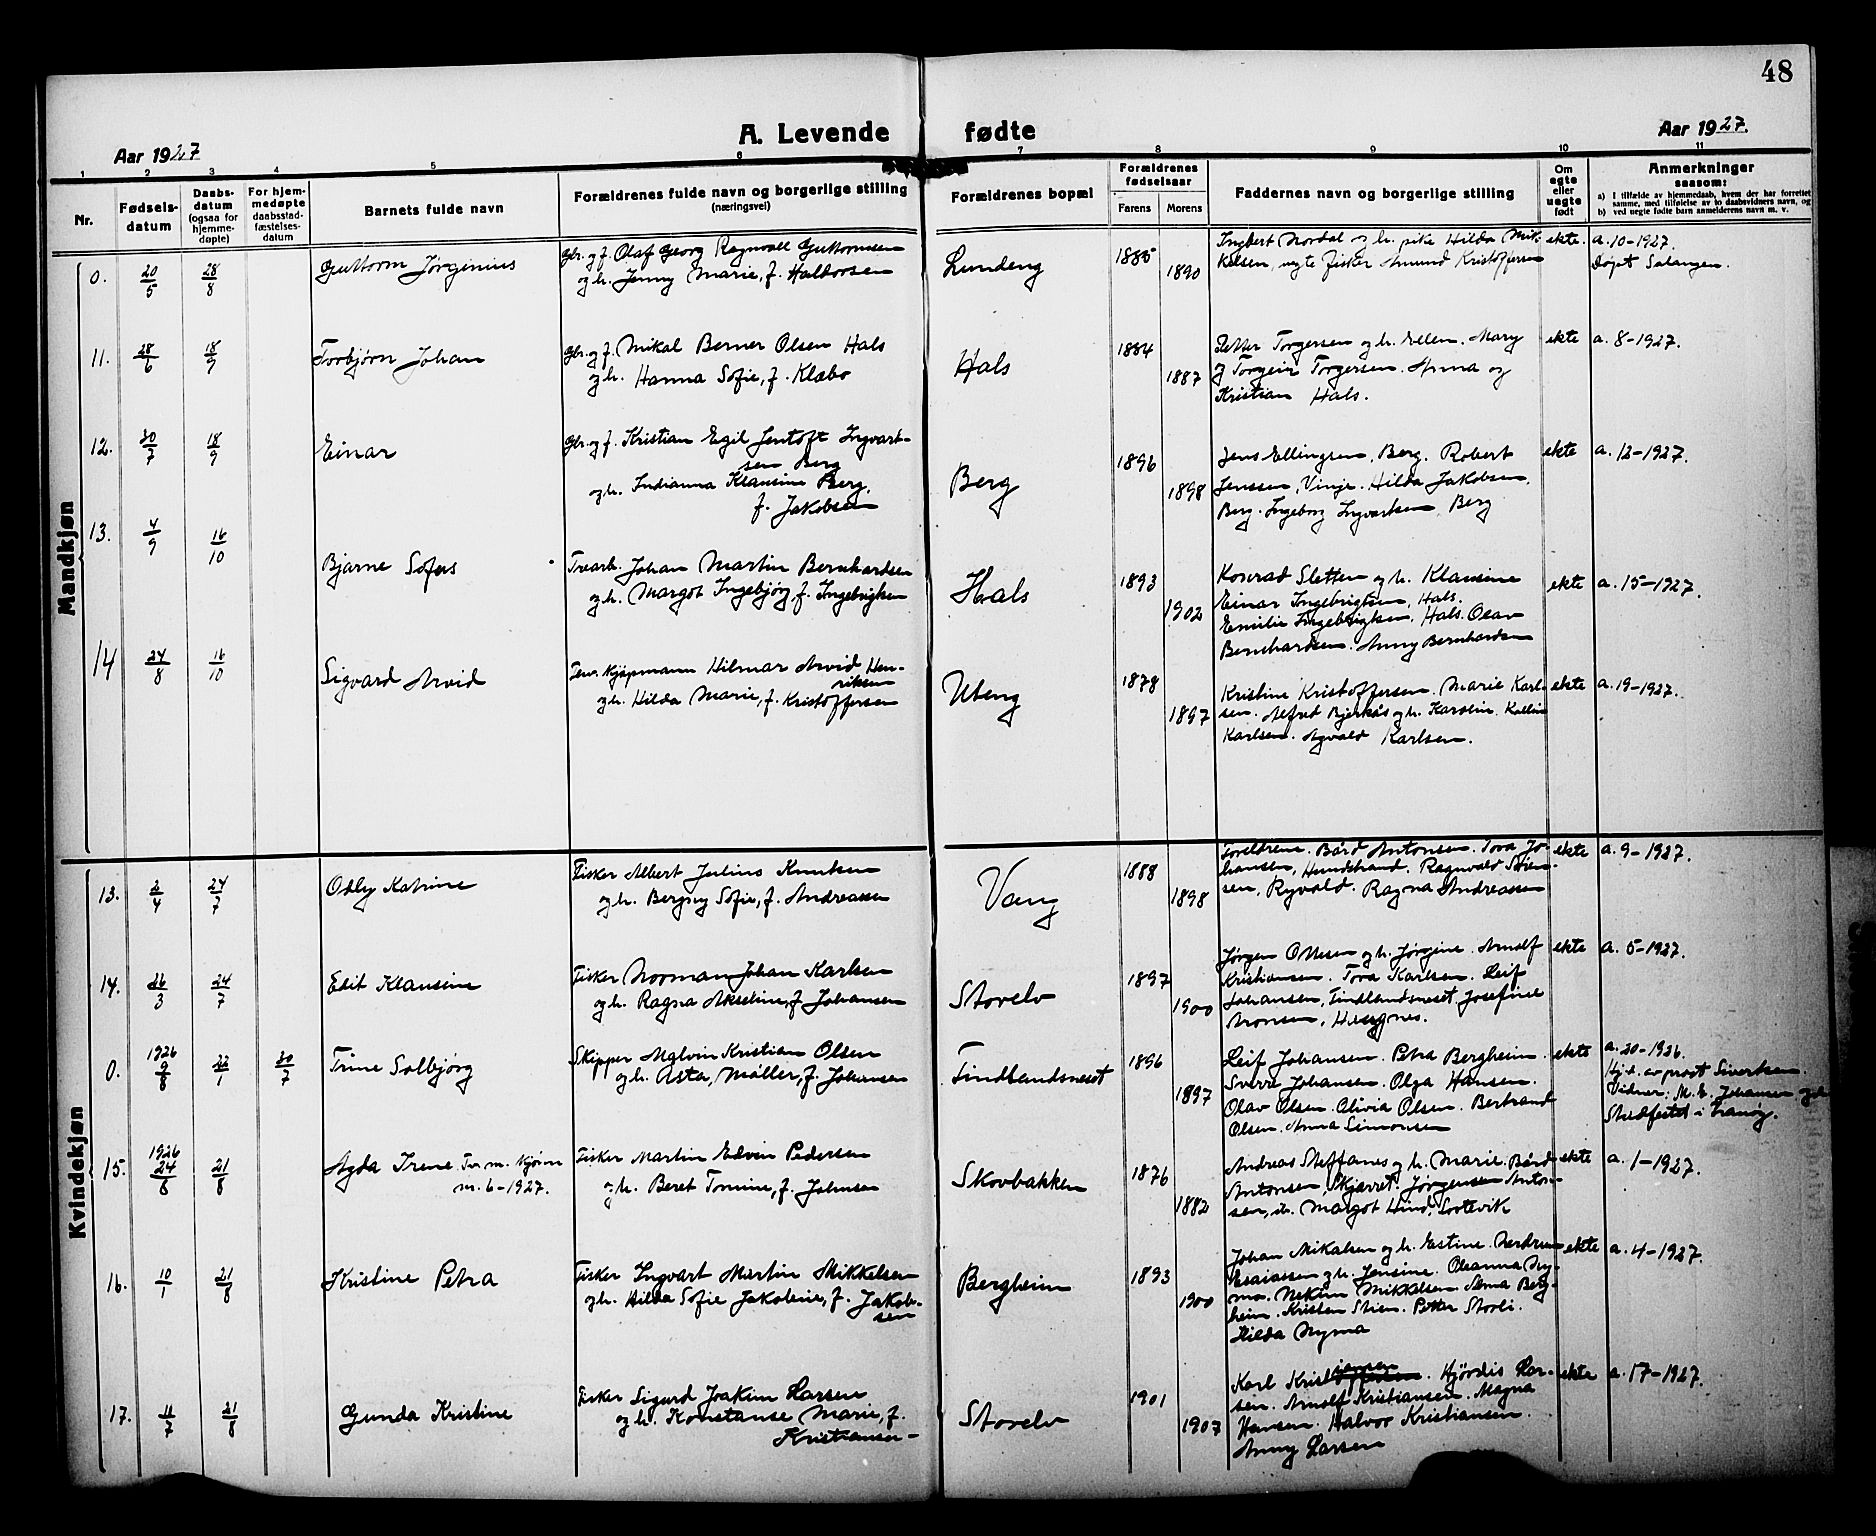 48
A. Levende fødte
Aar 1927
Aar 1927.
1 2 3 4 5 6 7 8 9 10 11
Nr.
Fødsels-
datum
Daabs-
datum
(ogsaa for
hjemme-
døpte)
For hjem-
medøpte
daabsstad-
fæstelses-
datum
Barnets fulde navn
Forældrenes fulde navn og borgerlige stilling
(næringsvei)
Forældrenes bopæl
Forældrenes
fødselsaar
Farens
Morens
Faddernes navn og borgerlige stilling
Om
egte
eller
uegte
født
Anmerkninger
saasom:
a) I tilfælde av hjemmedaab, hvem der har forrettet
samme, med tilføielse av to daabsvidners navn, og
b) ved uegte fødte barn anmelderens navn m. v.
Mandkjøn
0. 20/5 28/8
Guttorm Jørginius
Gbr. og f. Olaf Georg Ragnvall Guttormsen
og h. Jenny Marie, f. Haldorsen
Lundeng
1885
1890
Ingbert Nordal og h. pike Hilda Mik-
kelsen, ugte fisker Amund Kristoffersen
ekte.
a. 10-1927.
Døpt Salangen.
11. 28/6 18/9
Torbjørn Johan
Gbr. og f. Mikal Berner Olsen Hals
og h. Hanna Sofie, f. Klæbo
Hals
1884
1887
Petter Torgersen og h. Ellen. Mary
og Torgeir Torgersen. Anna og
Kristian Hals.
ekte
a. 8-1927.
12. 30/7 18/9
Einar
Gbr. og f. Kristian Egil Jentoft Ingvart-
sen Berg
og h. Indianna Klausine Berg,
f. Jakobsen
Berg
1896
1898
Jens Ellingsen, Berg. Robert
Jenssen, Vinje. Hilda Jakobsen,
Berg. Ingeborg Ingvartsen, Berg
ekte
a. 12-1927.
13. 4/9 16/10
Bjarne Sofus
Trearb. Johan Martin Bernhardsen
og h. Margot Ingebjørg, f. Ingebrigtsen
Hals
1893
1902
Konrad Sletten og h. Klausine
Einar Ingebrigtsen, Hals.
Emilie Ingebrigtsen, Hals. Olav
Bernhardsen. Anny Bernhardsen
ekte
a. 15-1927.
14 24/8 16/10
Sigvard Arvid
Kjøpmann Hilmar Arvid Hen-
riksen
og h. Hilda Marie, f. Kristoffersen
Uteng
1878
1897
Kristine Kristoffersen. Marie Karl-
sen. Alfred Bjerkås og h. Karolin. Kallin
Karlsen. Agvald Karlsen.
ekte
a. 19-1927.
Kvindekjøn
13. 2/4 24/7
Odly Katrine
Fisker Albert Julius Knutsen
og h. Bergny Sofie, f. Andreassen
Vang
1888
1898
Foreldrene. Bård Antonsen. Tora Jo-
hansen, Hundstrand. Ragnvald Søren-
sen, Ryvold. Ragna Andreassen
ekte
a. 9-1927.
14. 26/3 24/7
Edit Klausine
Fisker Norman Johan Karlsen
og h. Ragna Akseline, f. Johansen
Storelv
1897
1900
Jørgen Ottesen og h. Jørgine. Arnolf
Kristiansen. Tora Karlsen. Leif
Johansen, Finlandsneset. Josefine
Aronsen,
ekte
a. 5-1927.
0. 1926 9/8 22/1 30/7
Trine Solbjørg
Skipper Malvin Kristian Olsen
og h. Asta, Møller, f. Johansen
Finlandsneset
1896
1897
Leif Johansen. Petra Bergheim.
Sverre Johansen. Olga Hansen.
Olav Olsen. Olivia Olsen. Bertrand
Olsen. Anna Simonsen
ekte
a. 20-1926.
Hj.d. av prost Sivertsen.
Vidner: M. E. Johansen og h.
Stadfestet i Tranøy.
15. 1926 24/8 21/8
Agda Irene Tv. m. Kjønn
nr. 6-1927.
Fisker Martin Edvin Pedersen
og h. Beret Tomine, f. Johnsen
Skovbakken
1876
1882
Andreas Steffanes og h. Marie. Bård
Antonsen, Skjærret. Jørgensen Anton-
sen, h. Margot Hind, Sortevik
ekte
a. 1-1927.
16. 10/1 21/8
Kristine Petra
Fisker Ingvart Martin Mikkelsen
og h. Hilda Sofie Jakobine, f. Jakob-
sen
Bergheim
1893
1900
Johan Mikalsen og h. Estine. Nerdrum
Esaiassen og h. Jensine. Oleanna Ny-
mo. Nekim Mikkelsen. Anna Berg-
heim. Kristen Stien. Petter Storli.
Hilda Nymo
ekte
a. 4-1927.
17. 11/7 21/8
Gunda Kristine
Fisker Sigurd Joakim Larsen
og h. Konstanse Marie, f.
Kristiansen
Storelv
1901
1907
Karl Kristiansen. Hjørdis Lar-
sen. Arnolf Kristiansen. Magna
Hansen. Halvor Kristiansen.
Anny Larsen
ekte
a. 17-1927.